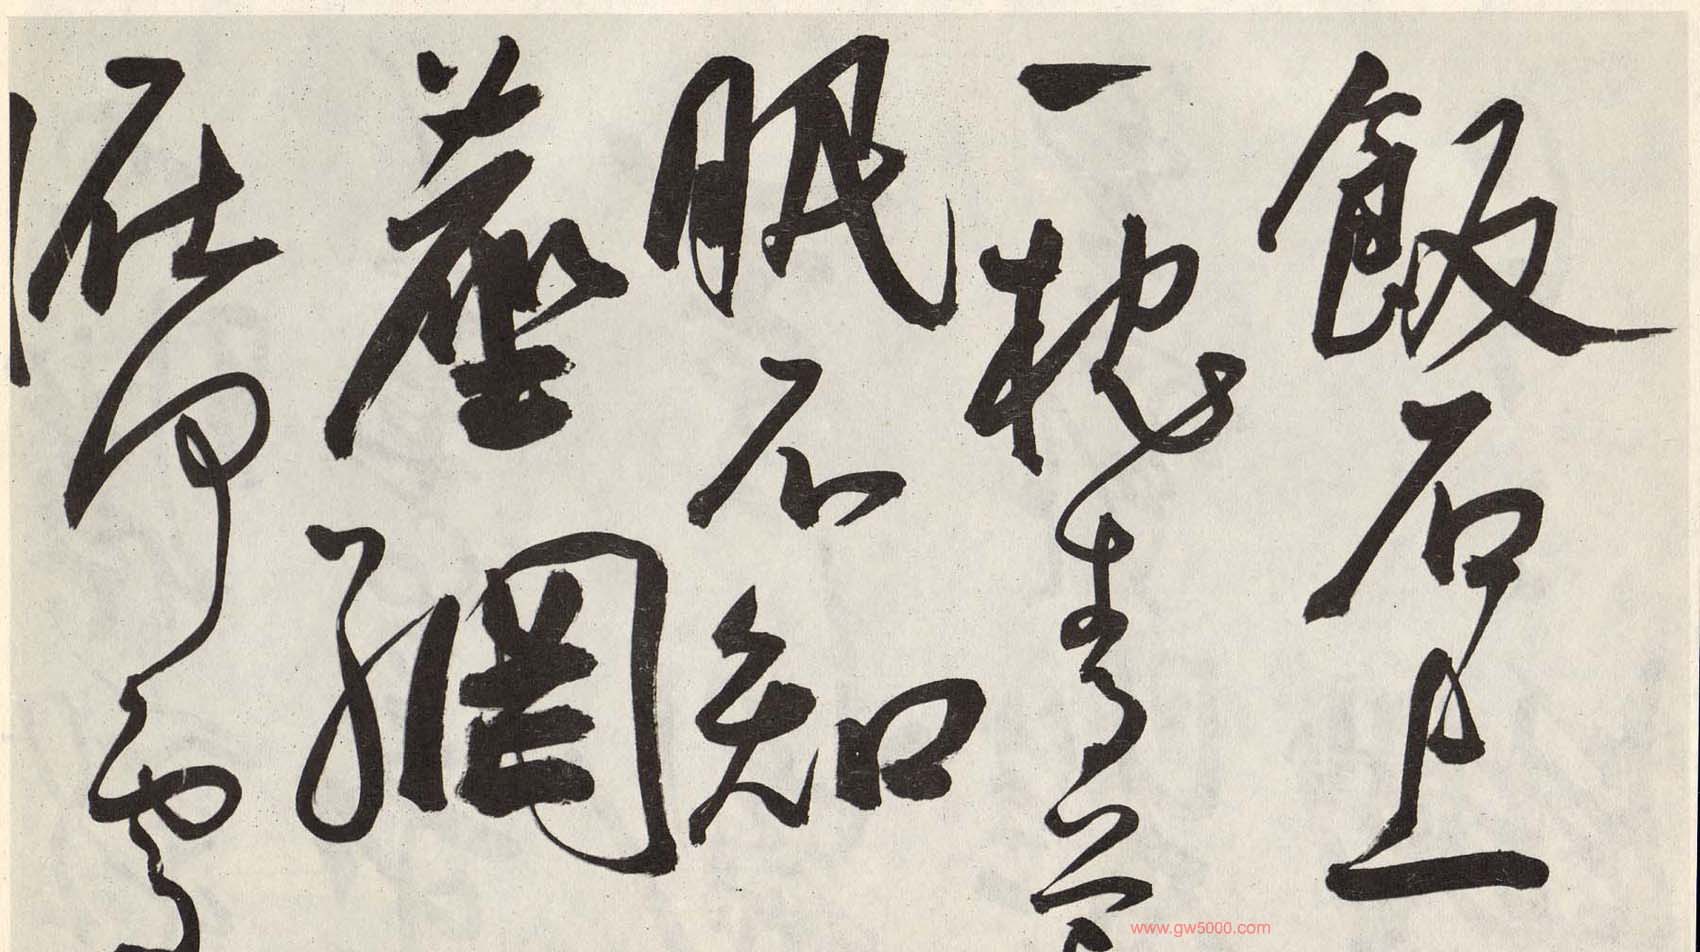 飯石上
一枕青
眠不知
塵網
在何處
www.gw5000.com